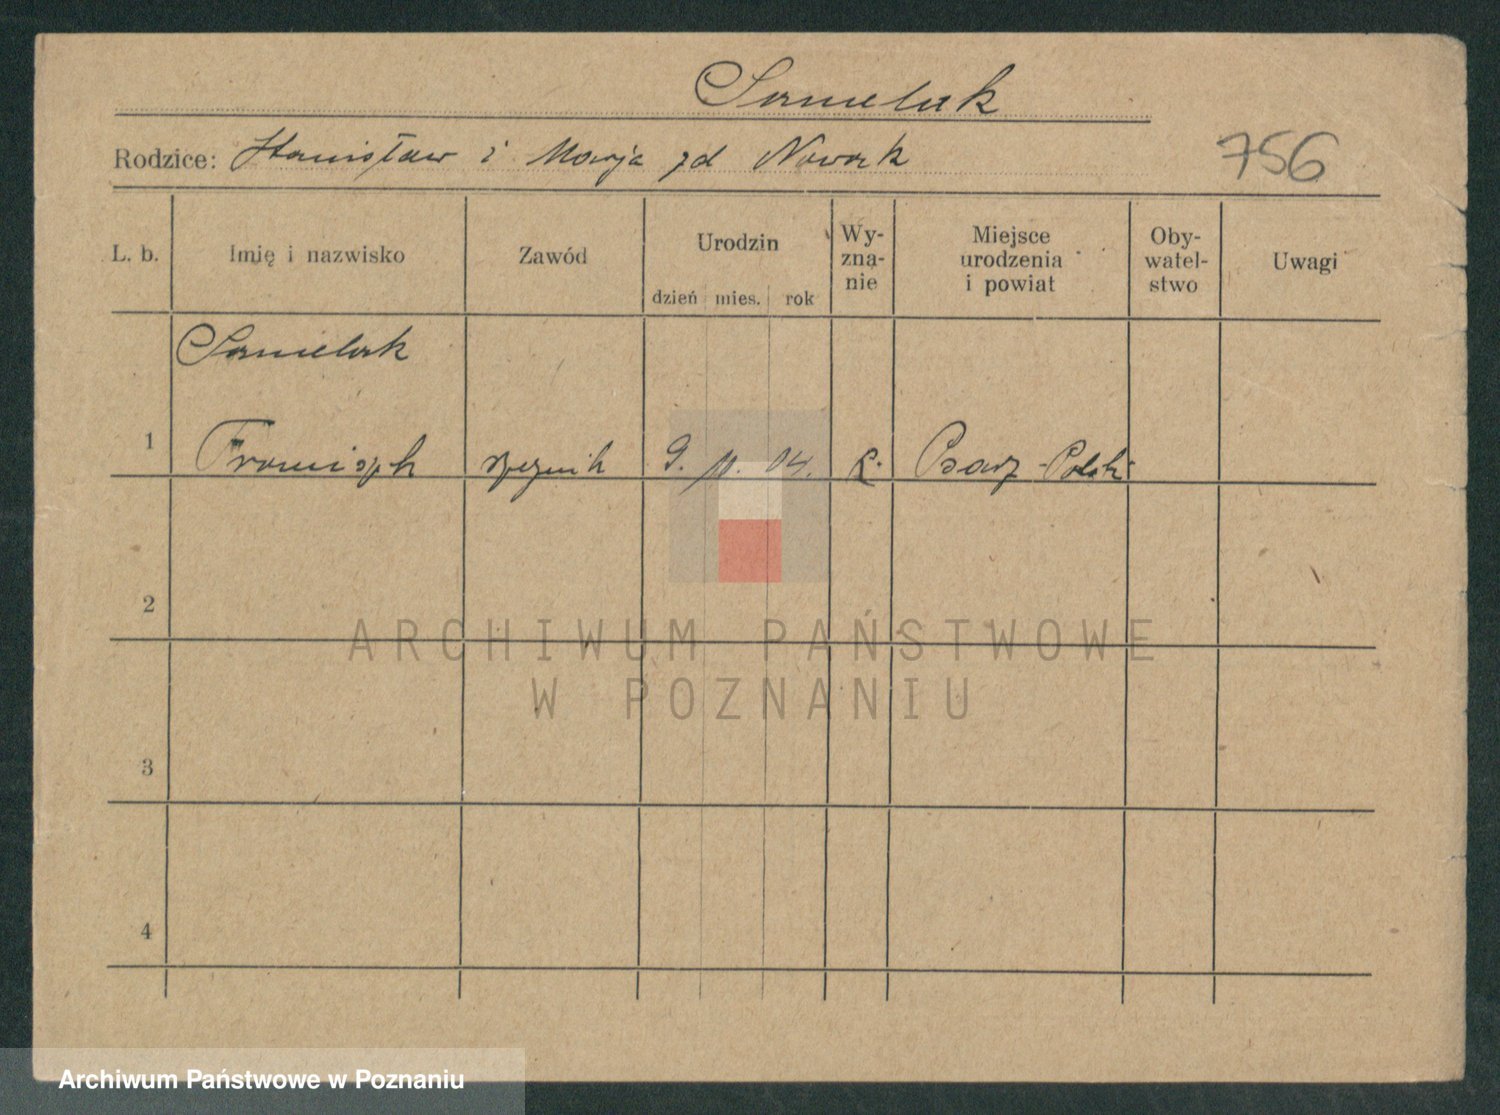 Samelak
Rodzice: Stanisław i Marja zd Nowak
756
L. b. Imię i nazwisko Zawód Urodzin dzień mies. rok Wy-zna-nie Miejsce urodzenia i powiat Oby-watel-stwo Uwagi
Samelak
1 Franciszek 9. 04. Psarz-Polski
2
3
4
ARCHIWUM PAŃSTWOWE
W POZNANIU
Archiwum Państwowe w Poznaniu